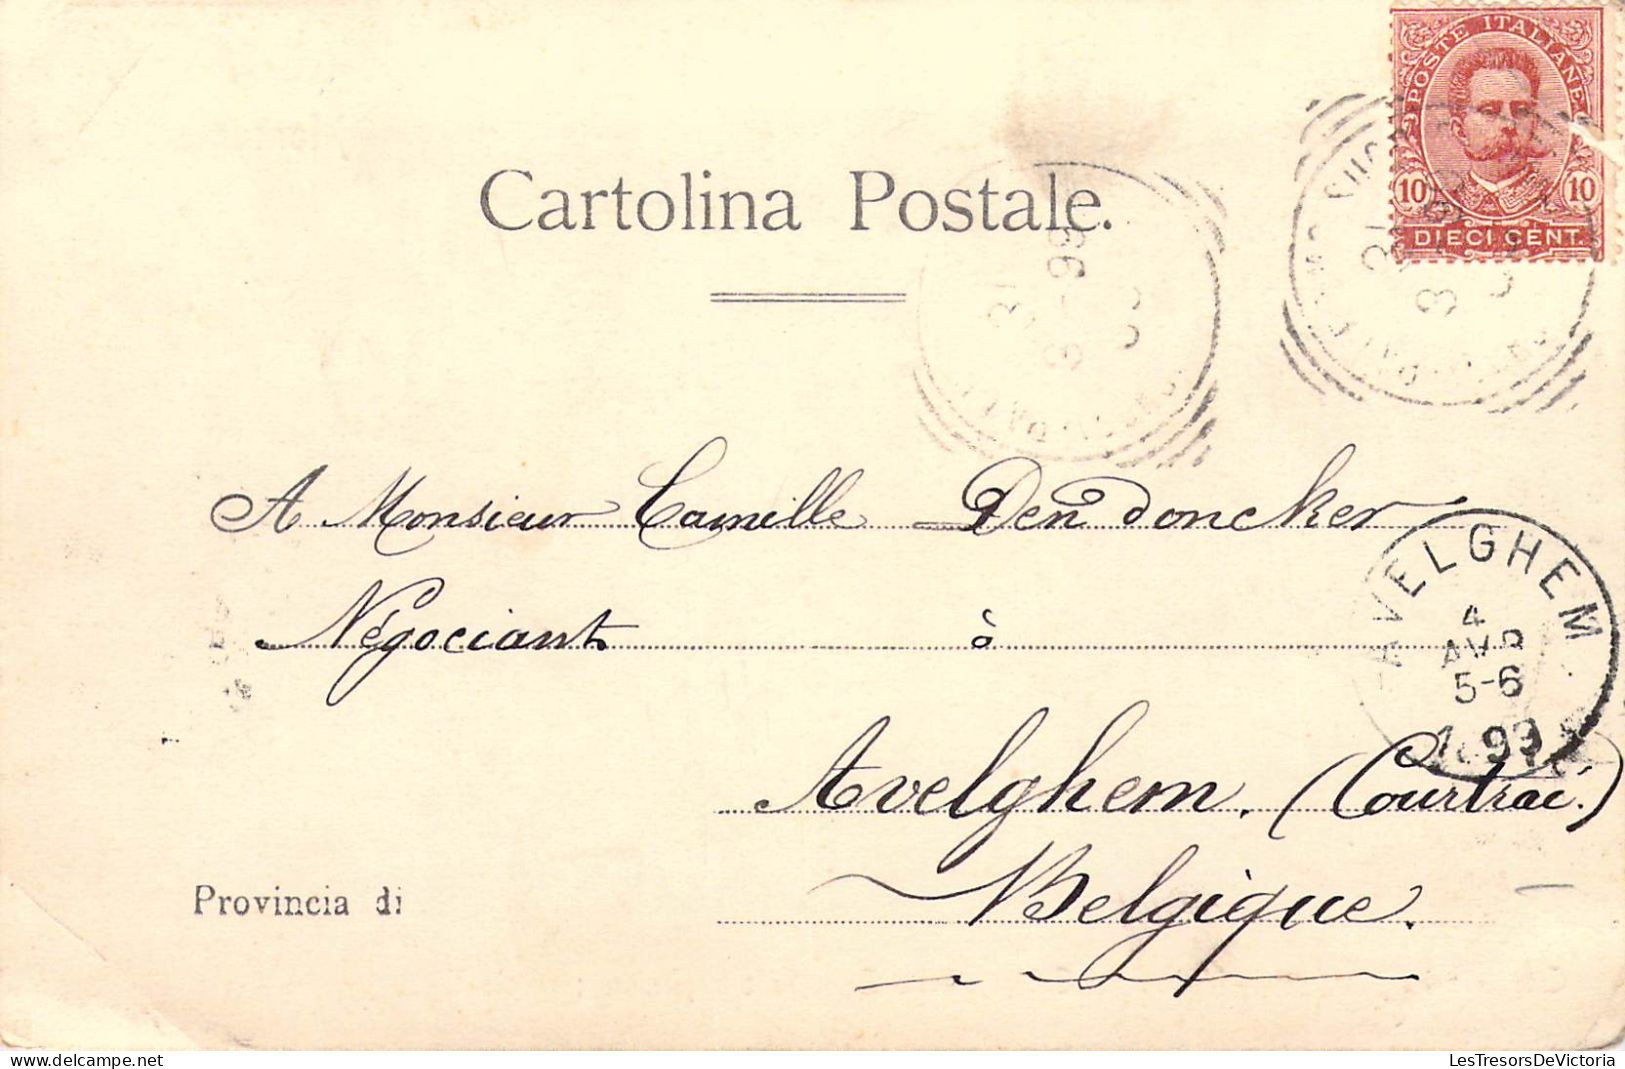 POSTE ITALIANE
10 10
DIECI CENT.
Cartolina Postale.
31
3-99
A Monsieur Camille Den doncker
Négociant à
AVELGHEM
4
AVR
5-6
1899
Avelghem. (Courtrai.)
Belgique.
Provincia di
www.delcampe.net
LesTresorsDeVictoria